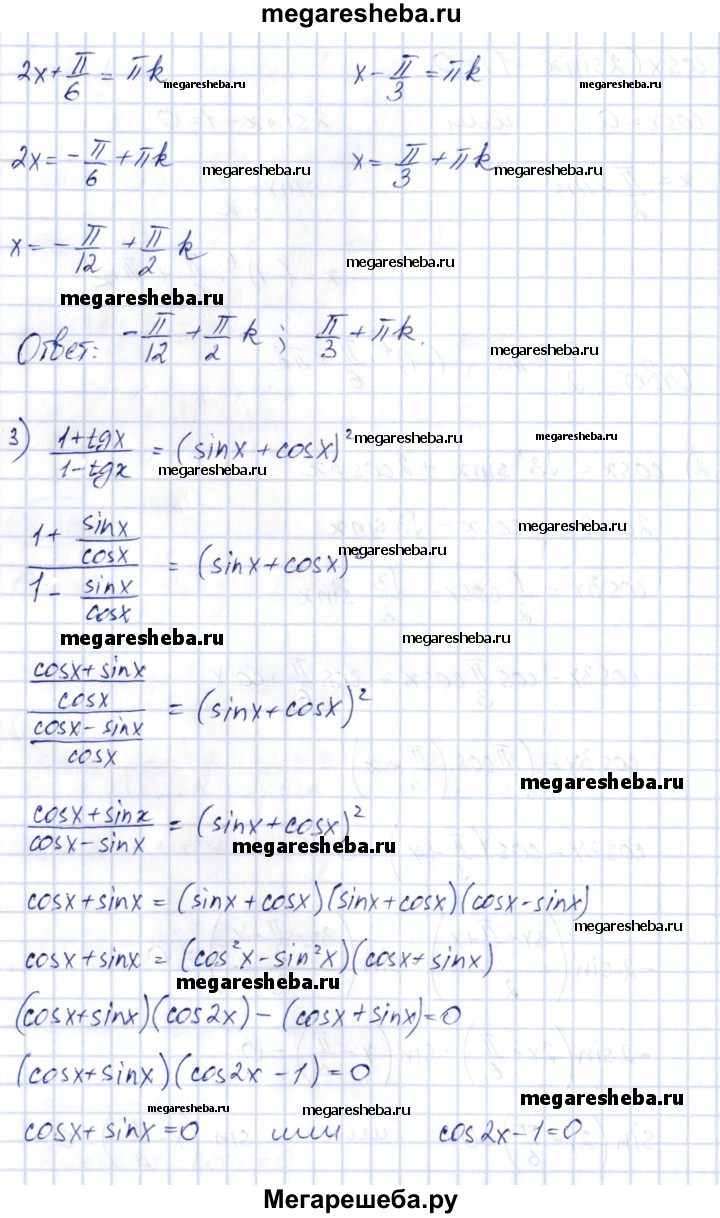 megaresheba.ru
2x + π/6 = πk megaresheba.ru x - π/3 = πk megaresheba.ru
2x = -π/6 + πk megaresheba.ru x = π/3 + πk megaresheba.ru
x = -π/12 + π/2 k megaresheba.ru
megaresheba.ru
Ответ: -π/12 + π/2 k; π/3 + πk. megaresheba.ru
3) (1+tgx)/(1-tgx) = (sinx + cosx)² megaresheba.ru megaresheba.ru
megaresheba.ru
(1 + sinx/cosx)/(1 - sinx/cosx) = (sinx + cosx)² megaresheba.ru
megaresheba.ru megaresheba.ru
((cosx + sinx)/cosx)/((cosx - sinx)/cosx) = (sinx + cosx)²
megaresheba.ru
(cosx + sinx)/(cosx - sinx) = (sinx + cosx)² megaresheba.ru
cosx + sinx = (sinx + cosx)(sinx + cosx)(cosx - sinx)
megaresheba.ru
cosx + sinx = (cos²x - sin²x)(cosx + sinx)
megaresheba.ru
(cosx + sinx)(cos2x) - (cosx + sinx) = 0
(cosx + sinx)(cos2x - 1) = 0
megaresheba.ru megaresheba.ru megaresheba.ru
cosx + sinx = 0 или cos2x - 1 = 0
Мегарешеба.ру